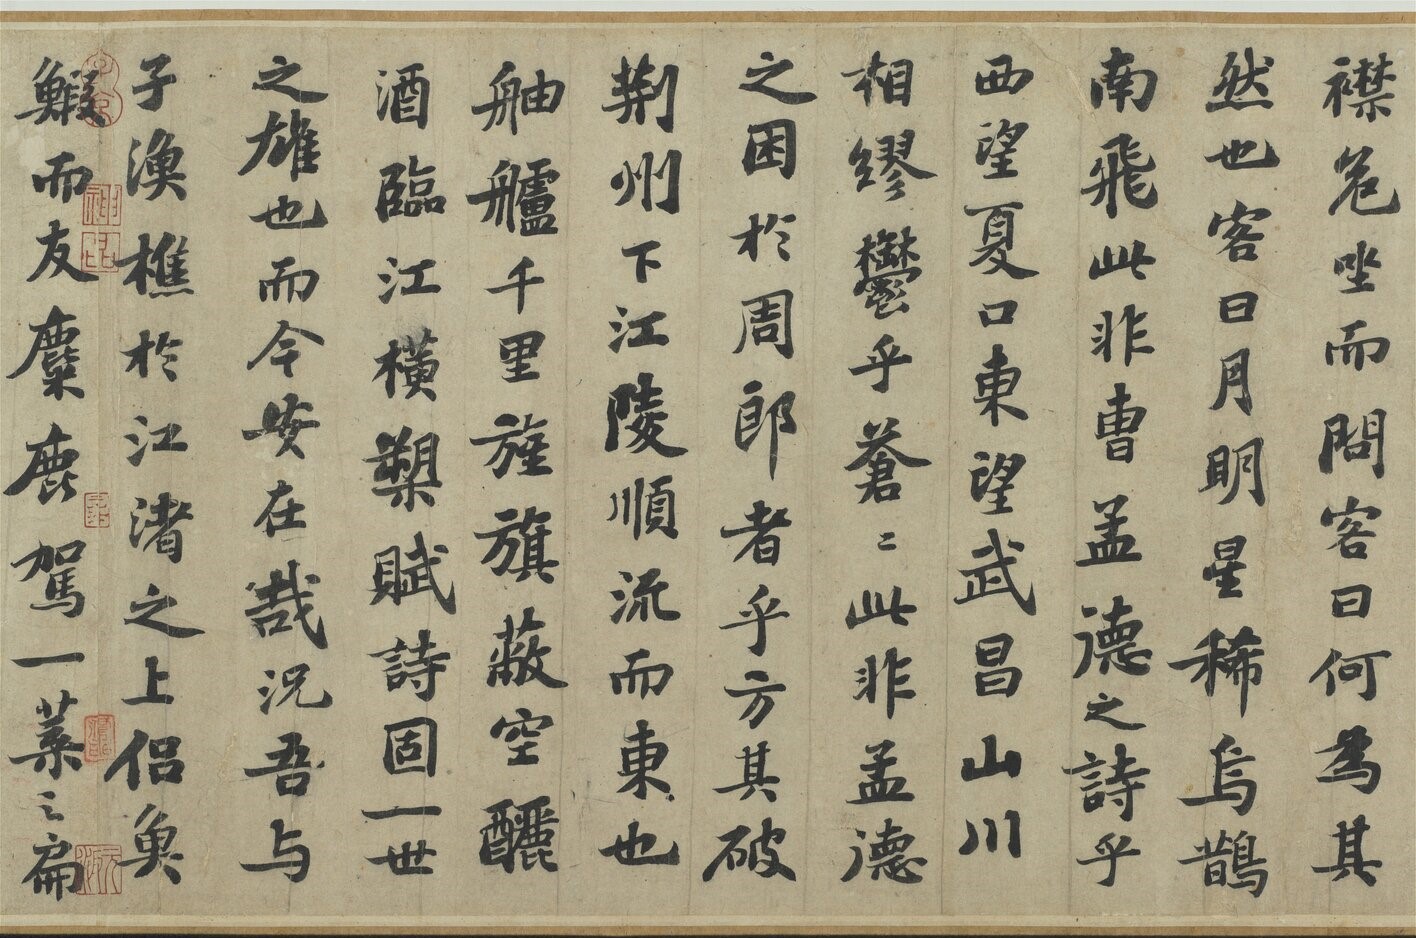 襟危坐而問客曰何為其
然也客曰月明星稀烏鵲
南飛此非曹孟德之詩乎
西望夏口東望武昌山川
相繆鬱乎蒼〻此非孟德
之困於周郎者乎方其破
荊州下江陵順流而東也
舳艫千里旌旗蔽空釃
酒臨江橫槊賦詩固一世
之雄也而今安在哉況吾与
子漁樵於江渚之上侶魚
鰕而友麋鹿駕一葉之扁